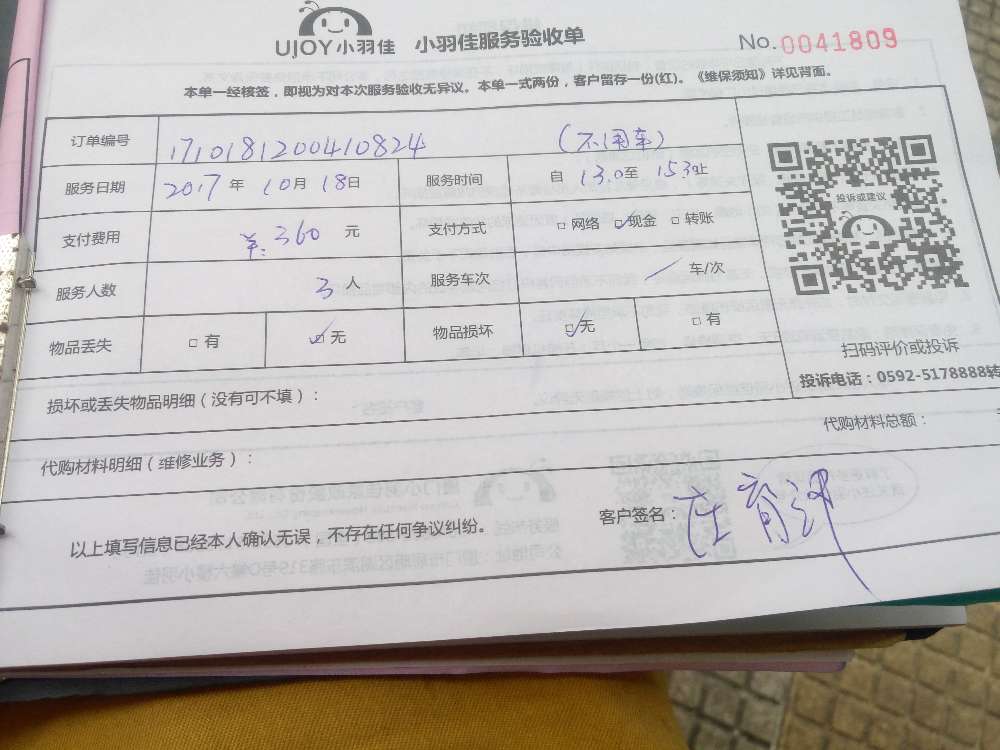 UJOY小羽佳 小羽佳服务验收单 No.0041809
本单一经核签，即视为对本次服务验收无异议。本单一式两份，客户留存一份(红)。《维保须知》详见背面。
订单编号 1710181200410824 (不用车)
服务日期 2017 年 10 月 18 日 服务时间 自 13.0 至 153 止
支付费用 ￥:360 元 支付方式 □ 网络 ☑ 现金 □ 转账
服务人数 3 人 服务车次 / 车/次
物品丢失 □ 有 ☑ 无 物品损坏 ☑ 无 □ 有
投诉或建议
扫码评价或投诉
投诉电话：0592-5178888转
损坏或丢失物品明细（没有可不填）：
代购材料总额：
代购材料明细（维修业务）：
以上填写信息已经本人确认无误，不存在任何争议纠纷。
客户签名：